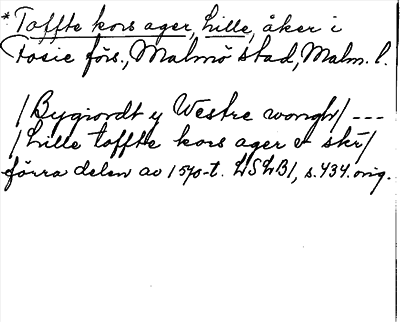 * Toffte kors ager, Lille, åker i
Fosie förs., Malmö stad, Malm. l.
/Bygiordt y Westre wongh/ ---
/Lille toffte kors ager e skr/
förra delen av 1570-t. LSLB1, s. 434. orig.